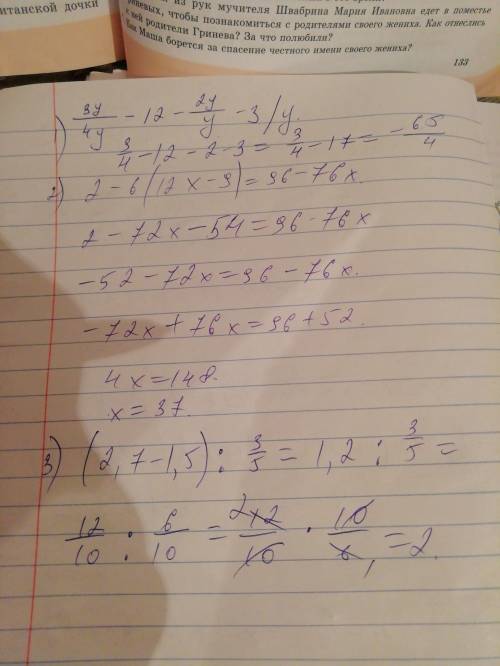 итанской дочки
из рук мучителя Швабрина Мария Ивановна едет в поместье
Гриневых, чтобы познакомиться с родителями своего жениха. Как отнеслись
к ней родители Гринева? За что полюбили?
Как Маша борется за спасение честного имени своего жениха?
133
1) 3y/4y - 12 - 2y/y - 3/y.
3/4 - 12 - 2 - 3 = 3/4 - 17 = -65/4
2) 2 - 6(12x - 9) = 96 - 76x.
2 - 72x - 54 = 96 - 76x
-52 - 72x = 96 - 76x.
-72x + 76x = 96 + 52.
4x = 148.
x = 37.
3) (2,7 - 1,5) : 3/5 = 1,2 : 3/5 =
12/10 : 6/10 = 12/10 · 10/6 = 2.